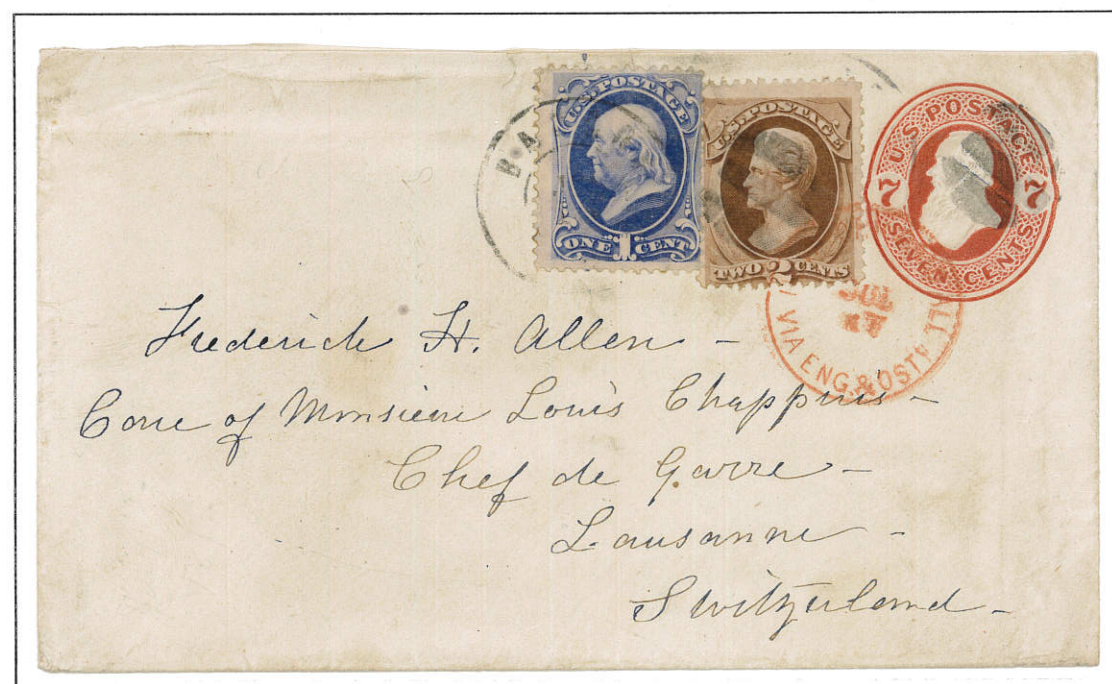 U.S. POSTAGE
ONE 1 CENT
U.S. POSTAGE
TWO 2 CENTS
U.S. POSTAGE
7 7
SEVEN CENTS
JUL
VIA ENG. & OSTD.
Frederick H. Allen –
Care of Monsieur Louis Chappuis –
Chef de Garre –
Lausanne –
Switzerland –